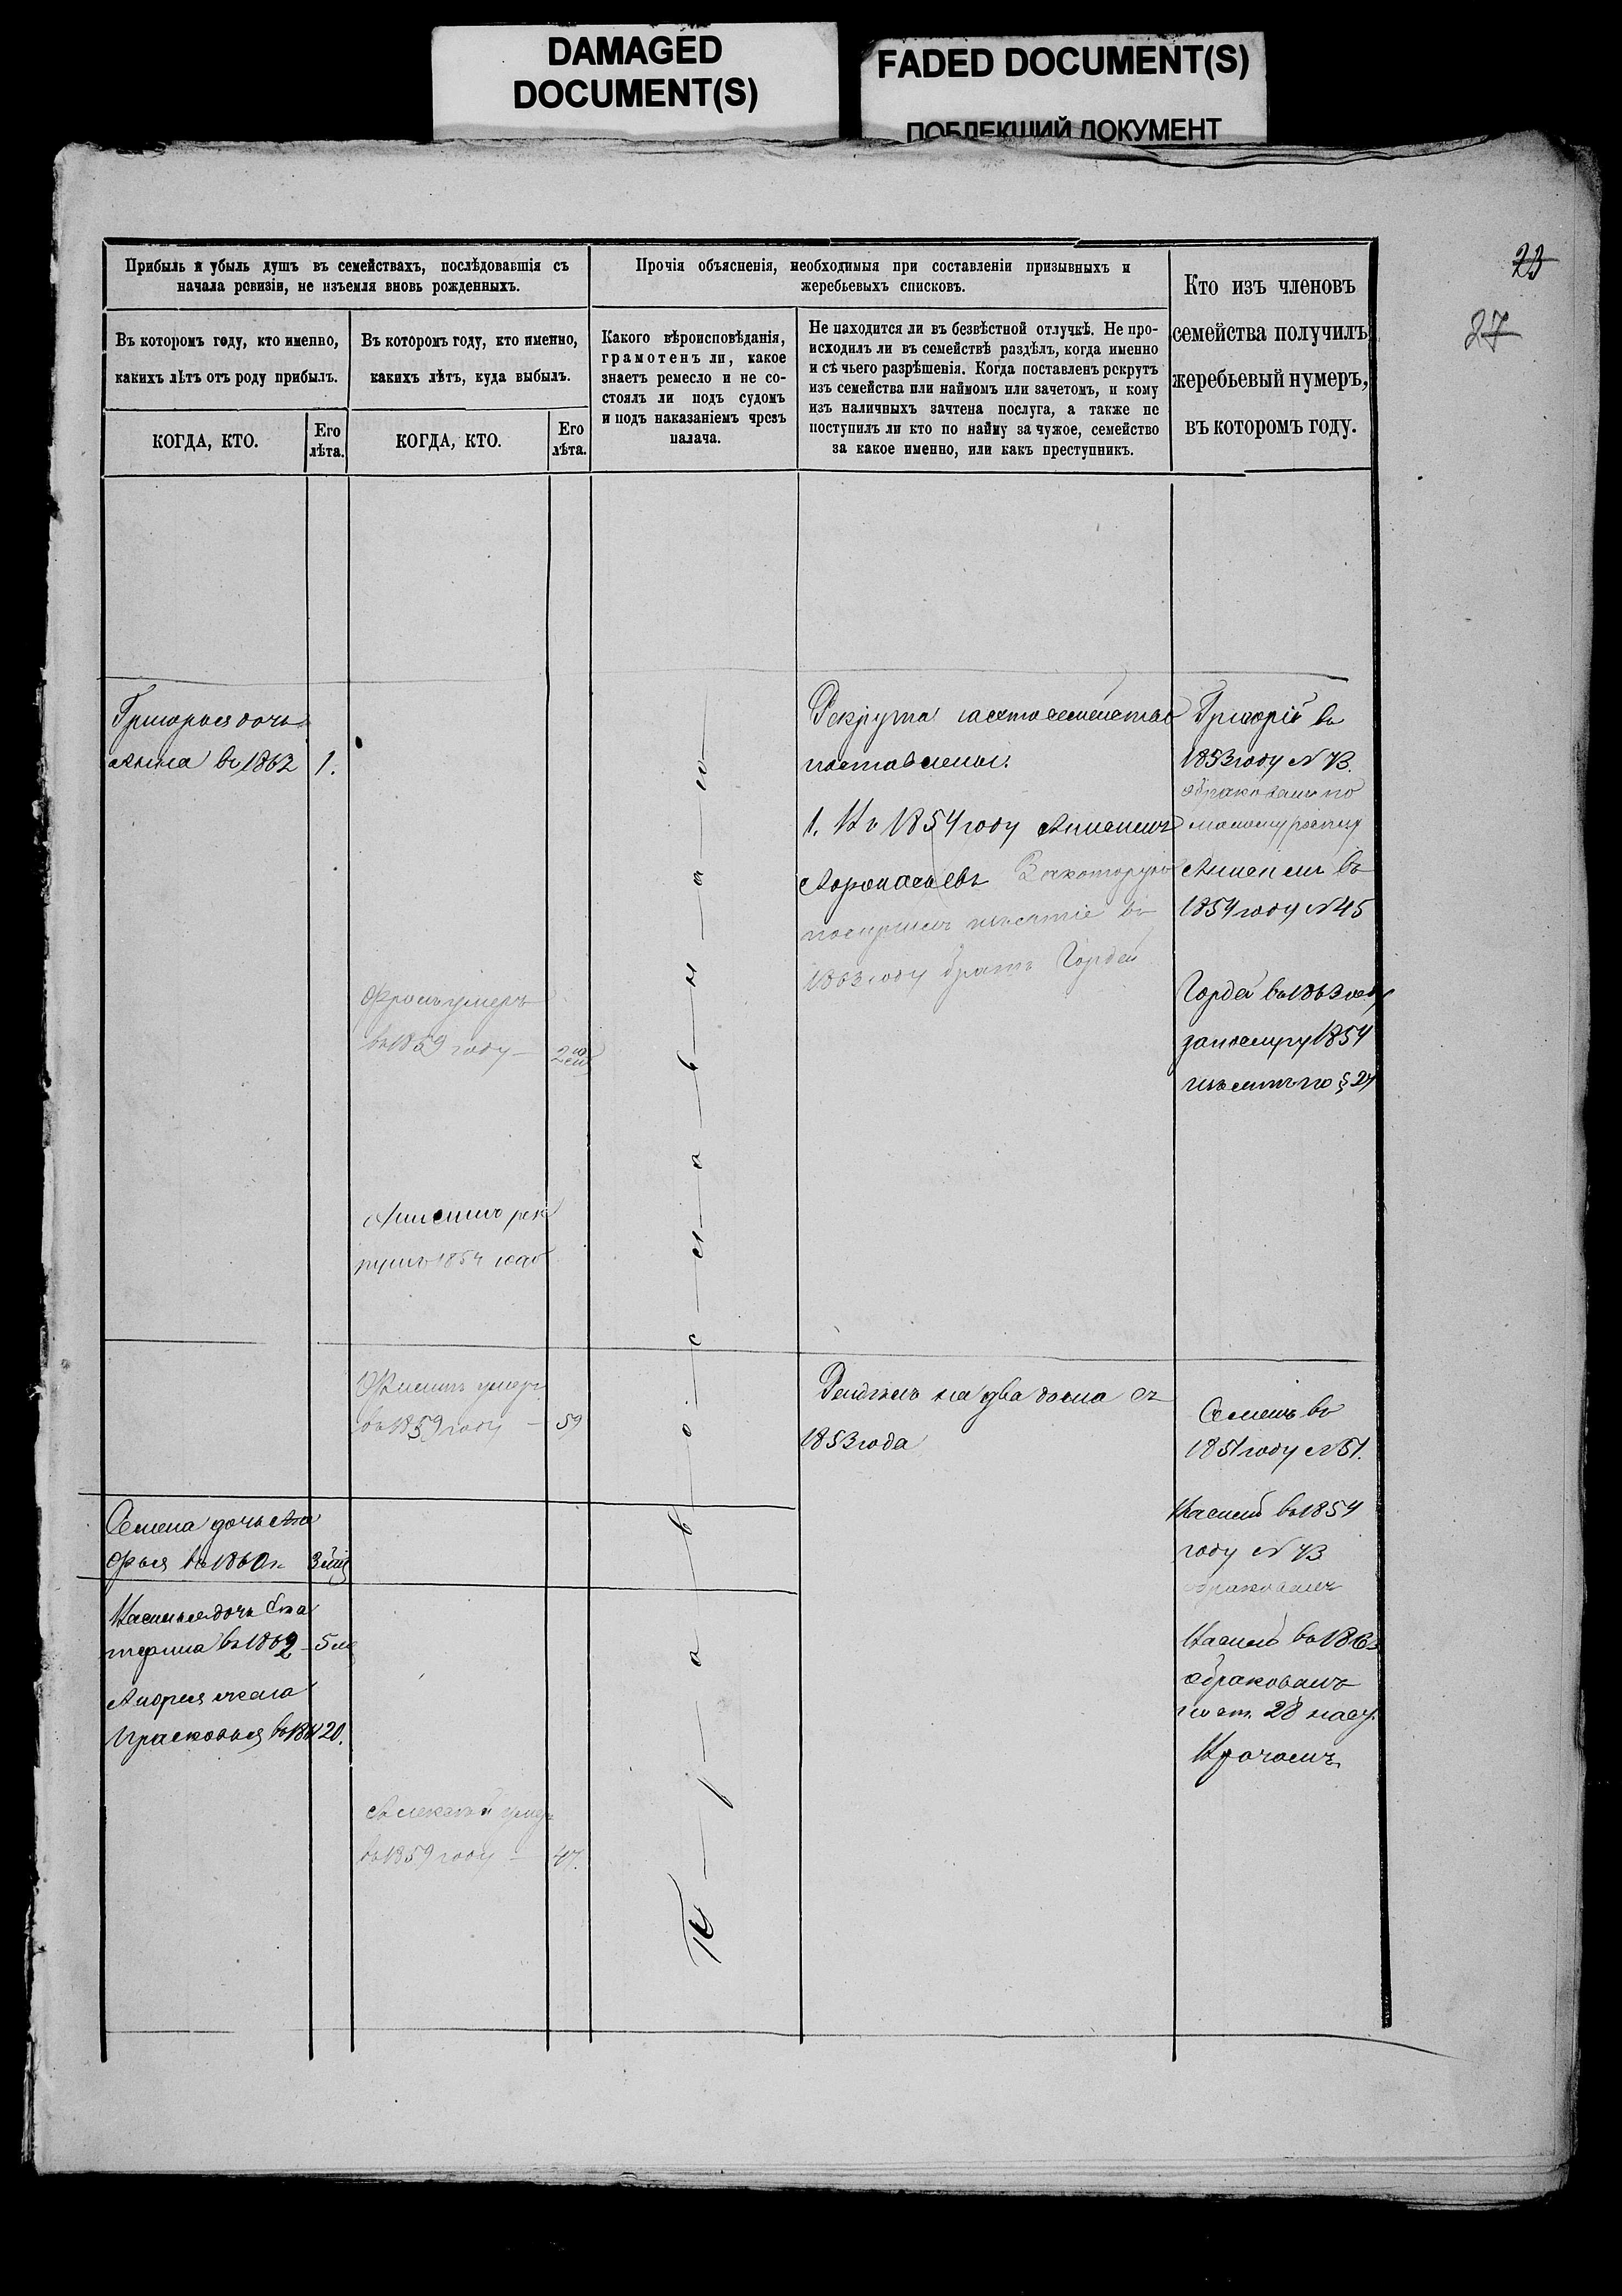 DAMAGED
DOCUMENT(S)
FADED DOCUMENT(S)
ПОБЛЕКШИЙ ДОКУМЕНТ
23
27
Прибыль и убыль душъ въ семействахъ, послѣдовавшія съ
начала ревизіи, не изъемля вновь рожденныхъ.
Въ которомъ году, кто именно,
какихъ лѣтъ отъ роду прибылъ.
КОГДА, КТО.
Его
лѣта.
Въ которомъ году, кто именно,
какихъ лѣтъ, куда выбылъ.
КОГДА, КТО.
Его
лѣта.
Прочія объясненія, необходимыя при составленіи призывныхъ и
жеребьевыхъ списковъ.
Какого вѣроисповѣданія,
грамотенъ ли, какое
знаетъ ремесло и не со-
стоялъ ли подъ судомъ
и подъ наказаніемъ чрезъ
палача.
Не находится ли въ безвѣстной отлучкѣ. Не про-
исходилъ ли въ семействѣ раздѣлъ, когда именно
и съ чьего разрѣшенія. Когда поставленъ рекрутъ
изъ семейства или наймомъ или зачетомъ, и кому
изъ наличныхъ зачтена послуга, а также не
поступилъ ли кто по найму за чужое, семейство
за какое именно, или какъ преступникъ.
Кто изъ членовъ
семейства получилъ
жеребьевый нумеръ,
въ которомъ году.
Григорья дочь
Анна въ 1862
1.
Семена дочь
въ 1860
Василья дочь Ека
терина въ 1862
Андрея жена
Прасковья въ
20.
умеръ
въ 1859 году
рек
рутъ 1854 года
умеръ
въ 1859 году
59
Алексѣй умеръ
въ 1859 году
47.
Православнаго
Рекрута
поставлены:
1. Въ 1854 году
За которую
въ
1863 году братъ Гордей
на два дома съ
1853 года
Григорій въ
1853 году № 73.
обракованъ по
малому росту
въ
1854 году № 45
Гордей въ 1863 году
1854
по § 24
Семенъ въ
1851 году № 51.
Василій въ 1854
году № 73
обракованъ
Василій въ
обракованъ
по ст. 28